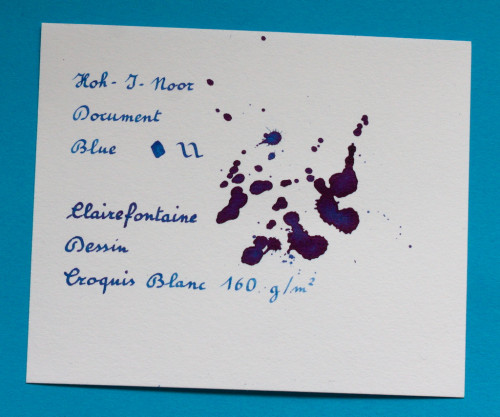 Koh-I-Noor
Document
Blue
Clairefontaine
Dessin
Croquis Blanc 160 g/m²